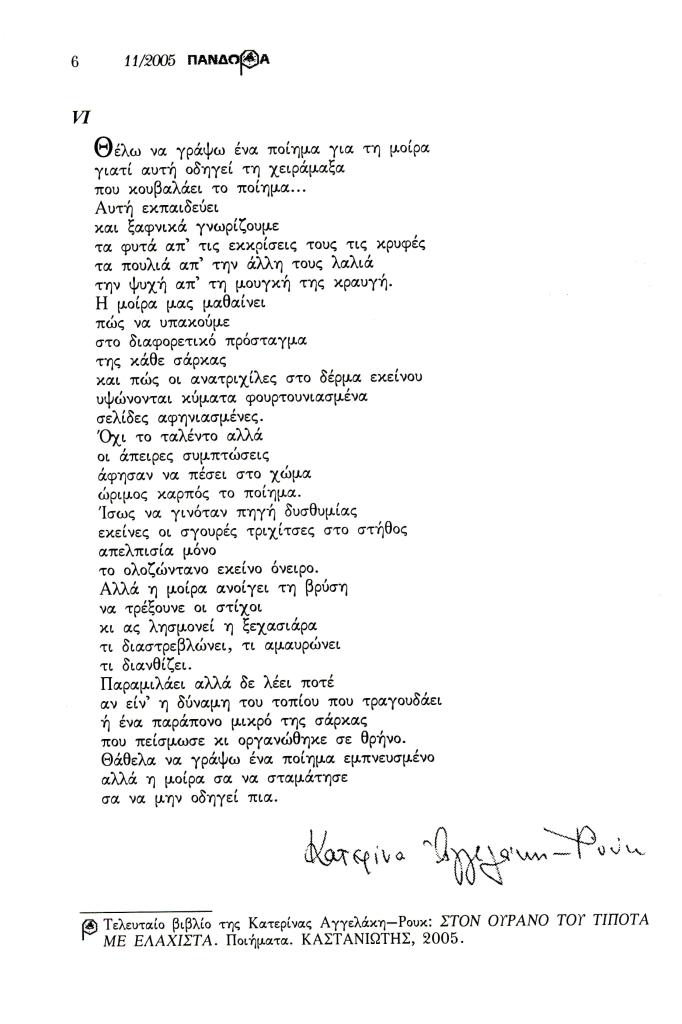 6 11/2005 ΠΑΝΔΟΡΑ
VI
Θέλω να γράψω ένα ποίημα για τη μοίρα
γιατί αυτή οδηγεί τη χειράμαξα
που κουβαλάει το ποίημα...
Αυτή εκπαιδεύει
και ξαφνικά γνωρίζουμε
τα φυτά απ' τις εκκρίσεις τους τις κρυφές
τα πουλιά απ' την άλλη τους λαλιά
την ψυχή απ' τη μουγκή της κραυγή.
Η μοίρα μας μαθαίνει
πώς να υπακούμε
στο διαφορετικό πρόσταγμα
της κάθε σάρκας
και πώς οι ανατριχίλες στο δέρμα εκείνου
υψώνονται κύματα φουρτουνιασμένα
σελίδες αφηνιασμένες.
Όχι το ταλέντο αλλά
οι άπειρες συμπτώσεις
άφησαν να πέσει στο χώμα
ώριμος καρπός το ποίημα.
Ίσως να γινόταν πηγή δυσθυμίας
εκείνες οι σγουρές τριχίτσες στο στήθος
απελπισία μόνο
το ολοζώντανο εκείνο όνειρο.
Αλλά η μοίρα ανοίγει τη βρύση
να τρέξουνε οι στίχοι
κι ας λησμονεί η ξεχασιάρα
τι διαστρεβλώνει, τι αμαυρώνει
τι διανθίζει.
Παραμιλάει αλλά δε λέει ποτέ
αν είν' η δύναμη του τοπίου που τραγουδάει
ή ένα παράπονο μικρό της σάρκας
που πείσμωσε κι οργανώθηκε σε θρήνο.
Θάθελα να γράψω ένα ποίημα εμπνευσμένο
αλλά η μοίρα σα να σταμάτησε
σα να μην οδηγεί πια.
Κατερίνα Αγγελάκη-Ρουκ
Τελευταίο βιβλίο της Κατερίνας Αγγελάκη–Ρουκ: ΣΤΟΝ ΟΥΡΑΝΟ ΤΟΥ ΤΙΠΟΤΑ
ΜΕ ΕΛΑΧΙΣΤΑ. Ποιήματα. ΚΑΣΤΑΝΙΩΤΗΣ, 2005.